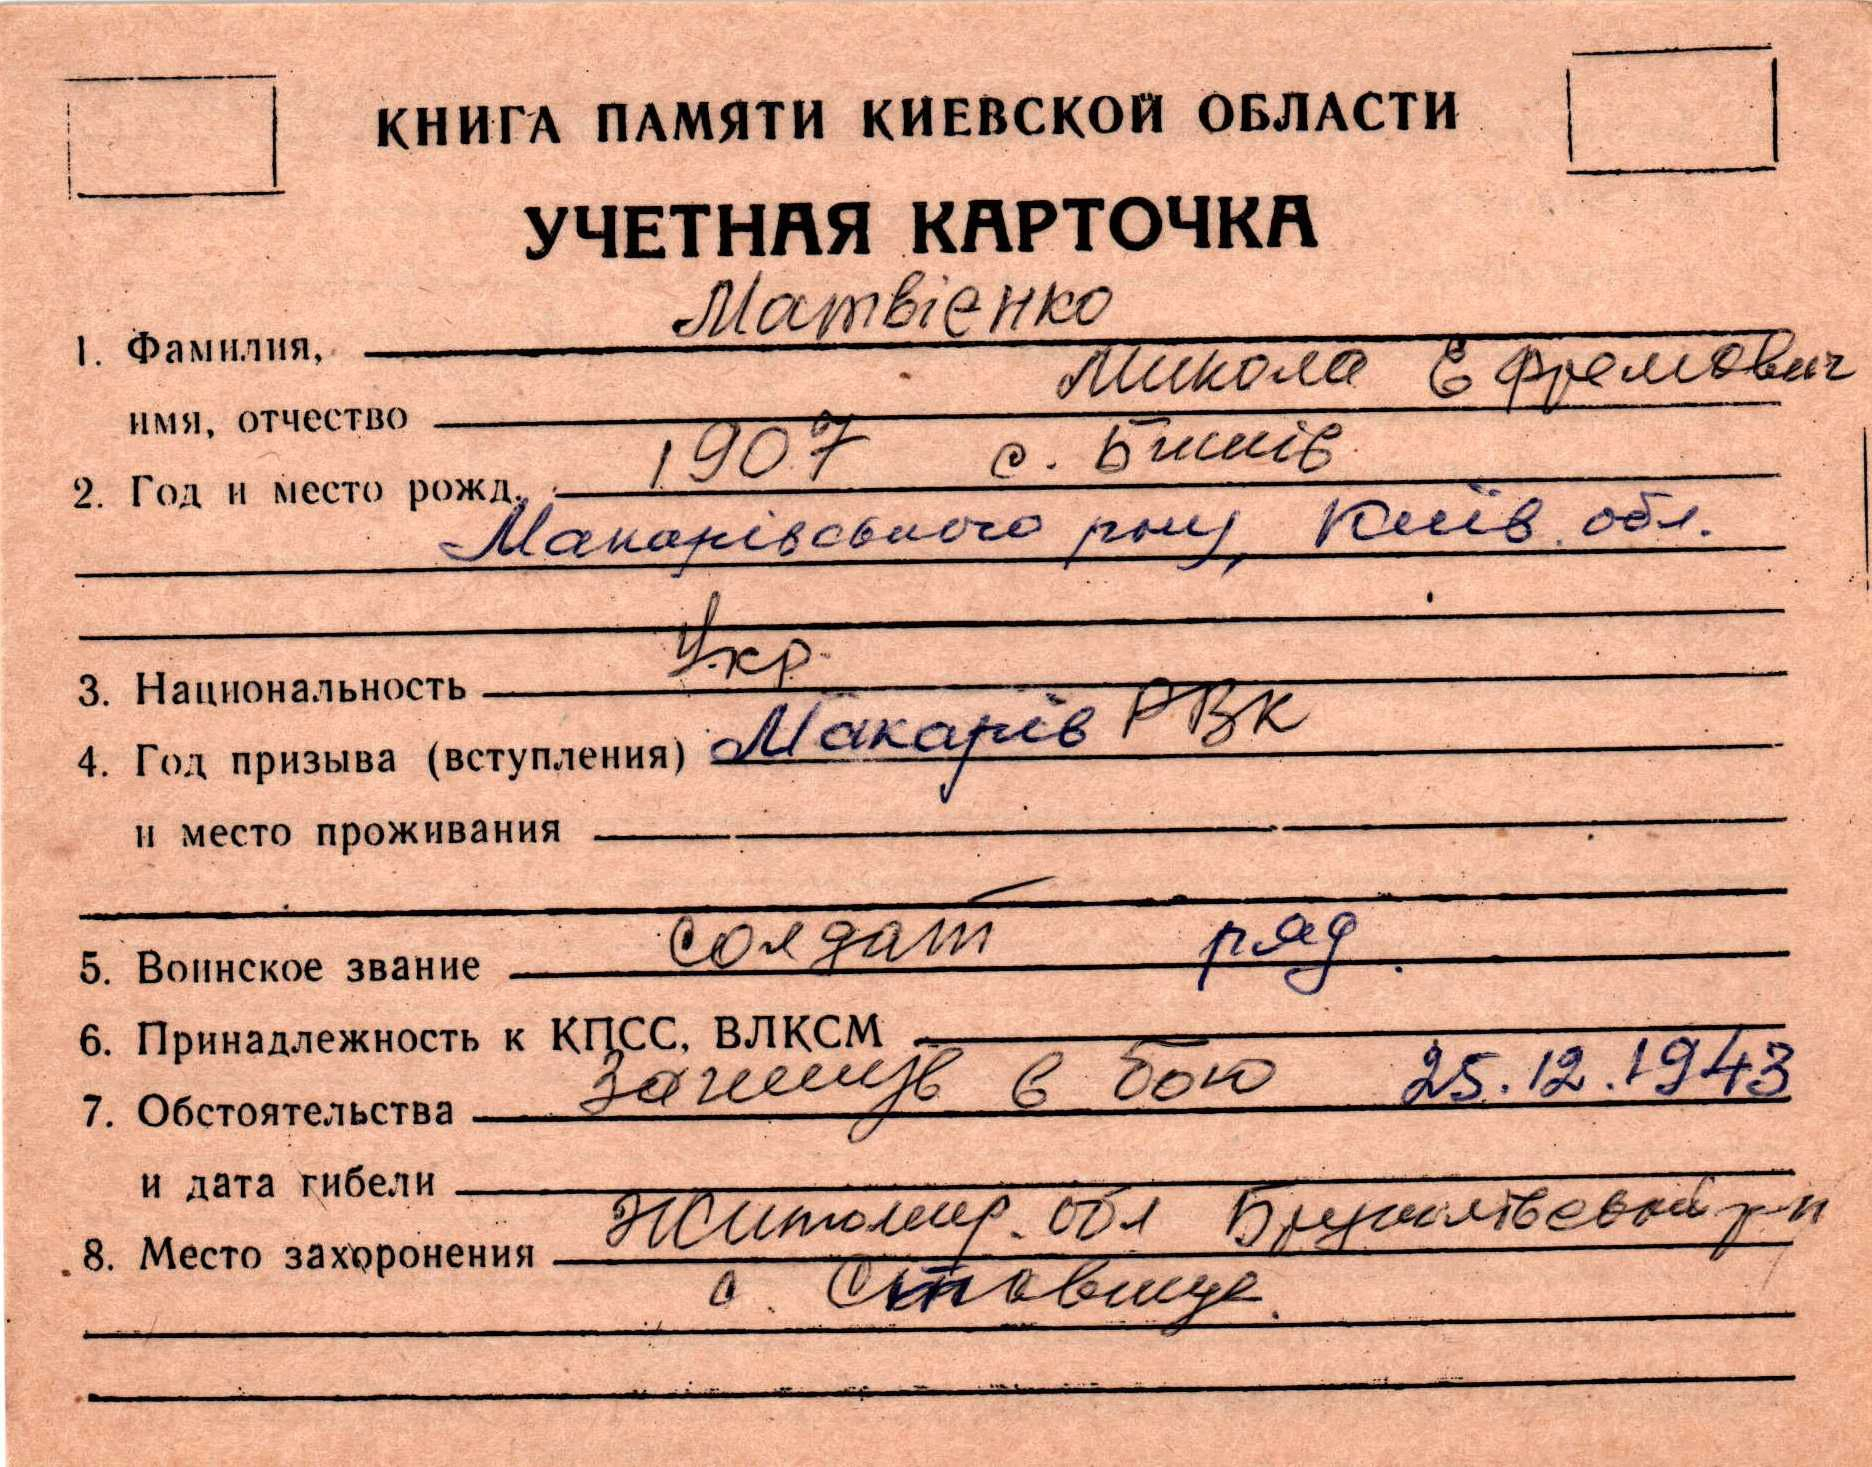 КНИГА ПАМЯТИ КИЕВСКОЙ ОБЛАСТИ
УЧЕТНАЯ КАРТОЧКА
1. Фамилия, Матвієнко
имя, отчество Микола Єфремович
2. Год и место рожд. 1907 с.
Макарівського р-ну, Київ. обл.
3. Национальность Укр.
4. Год призыва (вступления) Макарів РВК
и место проживания
5. Воинское звание солдат ряд.
6. Принадлежность к КПСС, ВЛКСМ
7. Обстоятельства Загинув в бою 25.12.1943
и дата гибели
8. Место захоронения Житомир. обл р-н
с. Ставище.